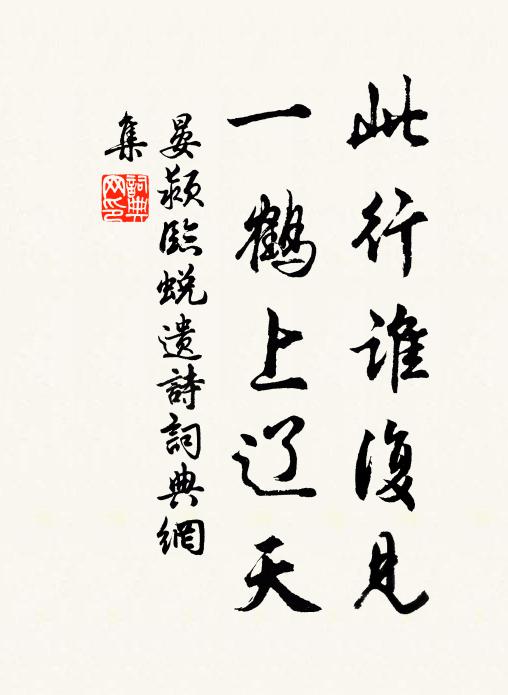 此行谁復見
一鶴上辽天
晏颍臨蛻遺詩詞典網
集
詞典
网印